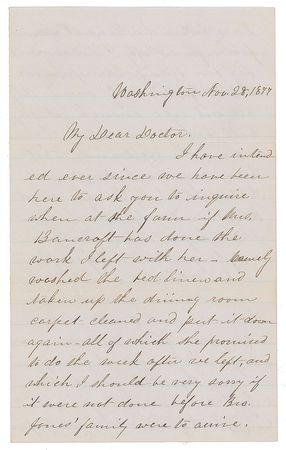 Washington Nov. 28, 1877
My Dear Doctor.
I have intend
ed ever since we have been
here to ask you to inquire
when at the farm if Mrs.
Bancroft has done the
work I left with her - namely
washed the bed linen and
taken up the dining room
carpet cleaned and put it down
again - all of which she promised
to do the week after we left, and
which I should be very sorry if
it were not done before
Jones' family were to arrive.